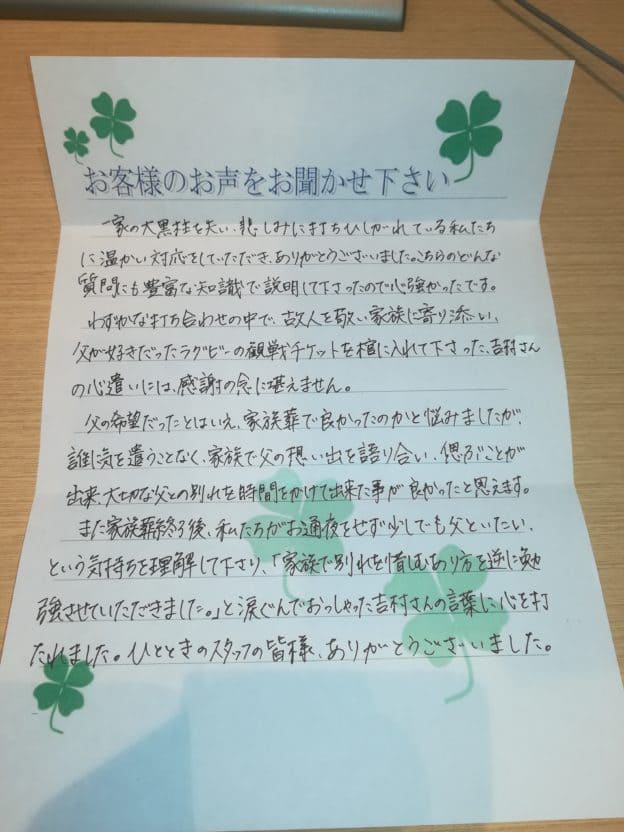 お客様のお声をお聞かせ下さい
一家の大黒柱を失い、悲しみに打ちひしがれている私たち
に温かい対応をしていただき、ありがとうございました。こちらのどんな
質問にも豊富な知識で説明して下さったので心強かったです。
わずかな打ち合わせの中で、故人を敬い、家族に寄り添い、
父が好きだったラグビーの観戦チケットを棺に入れて下さった、吉村さん
の心遣いには、感謝の念に堪えません。
父の希望だったとはいえ、家族葬で良かったのかと悩みましたが、
誰に気を遣うことなく、家族で父の想い出を語り合い、偲ぶことが
出来、大切な父との別れを時間をかけて出来た事が良かったと思えます。
また家族葬終了後、私たちがお通夜をせず少しでも父といたい、
という気持ちを理解して下さり、「家族で別れを惜しむあり方を逆に勉
強させていただきました。」と涙ぐんでおっしゃった吉村さんの言葉に心を打
たれました。ひとときのスタッフの皆様、ありがとうございました。